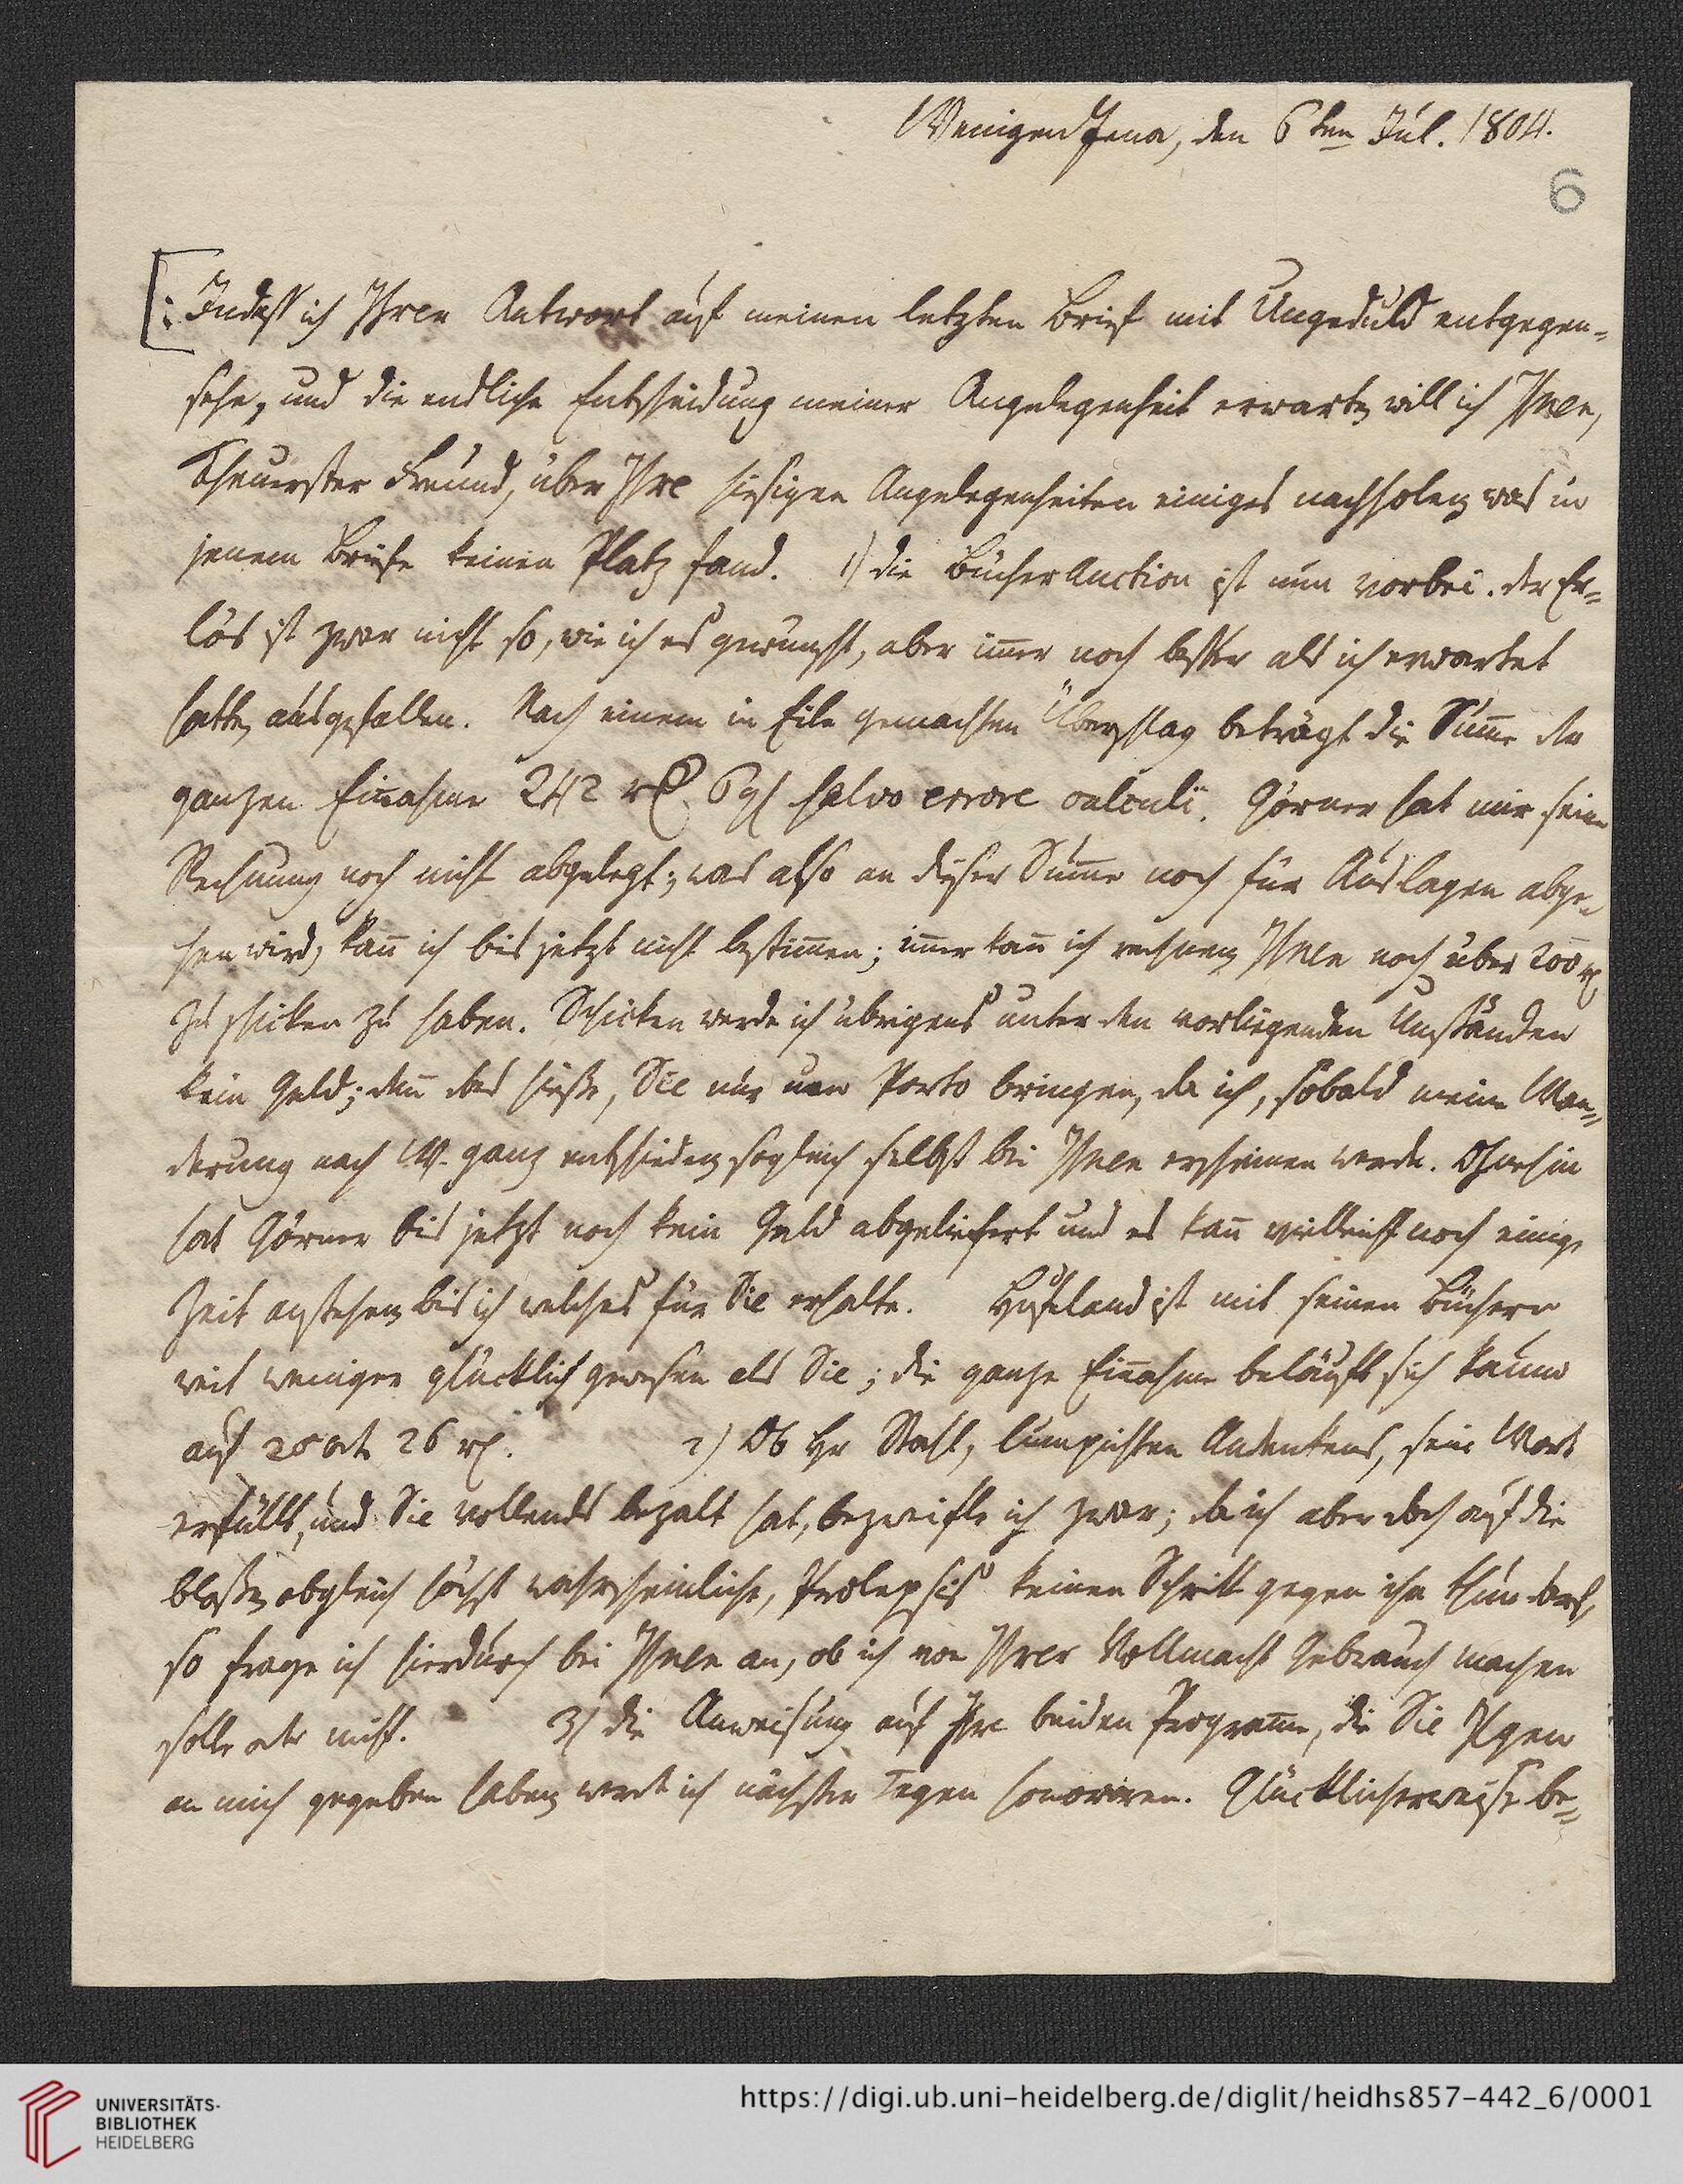 WenigenJena, den 6ten Jul. 1804.
6
[: Indeß ich Ihrer Antwort auf meinen letzten Brief mit Ungeduld entgegen=
sehe, und die endliche Entscheidung meiner Angelegenheit erwarte, will ich Ihnen,
Theuerster Freund, über Ihre hiesigen Angelegenheiten einiges nachholen, was in
jenem Briefe keinen Platz fand. 1) die BücherAuction ist nun vorbei. der Er=
lös ist zwar nicht so, wie ich es gewünscht, aber im̅er noch besser als ich erwartet
hatte, ausgefallen. Nach einem in Eile gemachten Überschlag beträgt die Sum̅e der
ganzen Ein̅ahme 242 rℓ. 6 gℓ salvo errore calculi. Görner hat mir seine
Rechnung noch nicht abgelegt; was also an dieser Sum̅e noch für Auslagen abge=
hen wird, kan̅ ich bis jetzt nicht bestim̅en; im̅er kan̅ ich rechnen, Ihnen noch über 200 rℓ
zu schicken zu haben. Schicken werde ich übrigens unter den vorliegenden Umständen
kein Geld; den̅ das hieße, Sie nur um Porto bringen, da ich, sobald meine Wan=
derung nach W. ganz entschieden, sogleich selbst bei Ihnen erscheinen werde. Ohnehin
hat Görner bis jetzt noch kein Geld abgeliefert und es kan̅ vielleicht noch einige
Zeit anstehen, bis ich welches für Sie erhalte. Hufeland ist mit seinen Büchern
weit weniger glücklich gewesen als Sie; die ganze Ein̅ahme beläuft sich kaum
auf 25 odr. 26 rℓ. 2) Ob Hr Vast, lumpichten Andenkens, sein Wort
erfüllt, und Sie vollends bezalt hat, bezweifle ich zwar; da ich aber doch auf die
bloße, obgleich höchst wahrscheinliche, Prolepsis keinen Schritt gegen ihn thun darf,
so frage ich hierdurch bei Ihnen an, ob ich von Ihrer Vollmacht Gebrauch machen
solle oder nicht. 3) die Anweisung auf Ihre beiden Program̅e, die Sie Ilgen
an mich gegeben haben, werde ich nächster Tagen honoriren. Glücklicherweise be=
UNIVERSITÄTS-
BIBLIOTHEK
HEIDELBERG
https://digi.ub.uni-heidelberg.de/diglit/heidhs857-442_6/0001